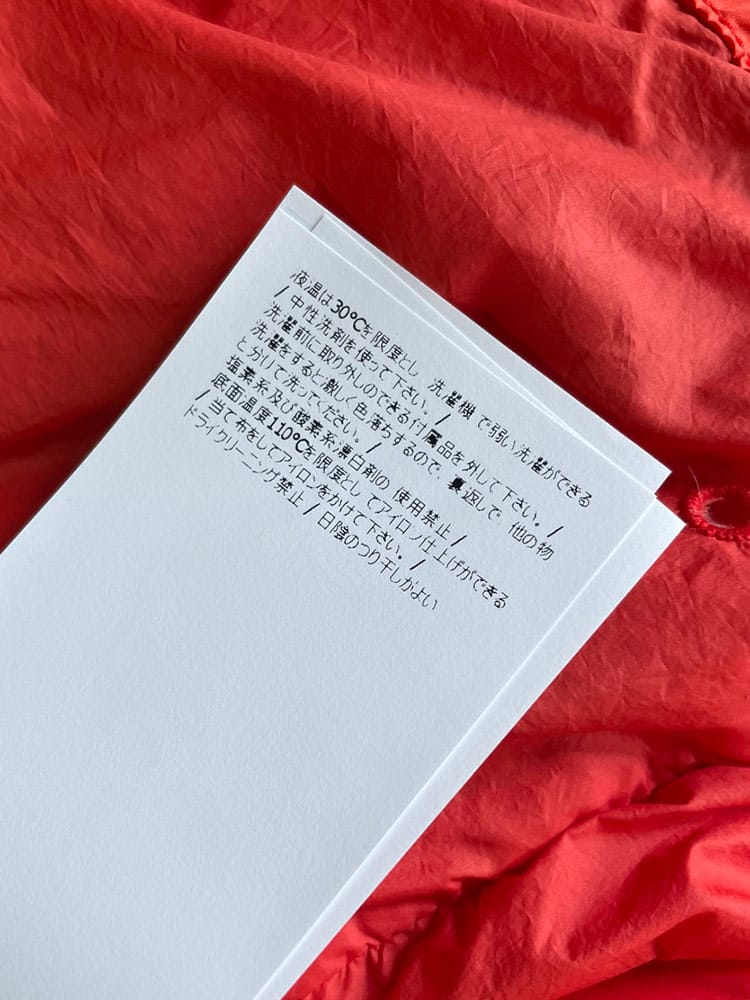 液温は30℃を限度とし 洗濯機 で弱い洗濯ができる
/ 中性洗剤を使って下さい。 /
洗濯前に取り外しのできる付属品を外して下さい。 /
洗濯をすると激しく色落ちするので、裏返しで 他の物
と分けて洗ってください。 /
塩素系及び酸素系漂白剤の 使用禁止 /
底面温度110℃を限度とし てアイロン仕上げができる
/ 当て布をしてアイロンをかけて下さい。 /
ドライクリーニング禁止 / 日陰のつり干しがよい